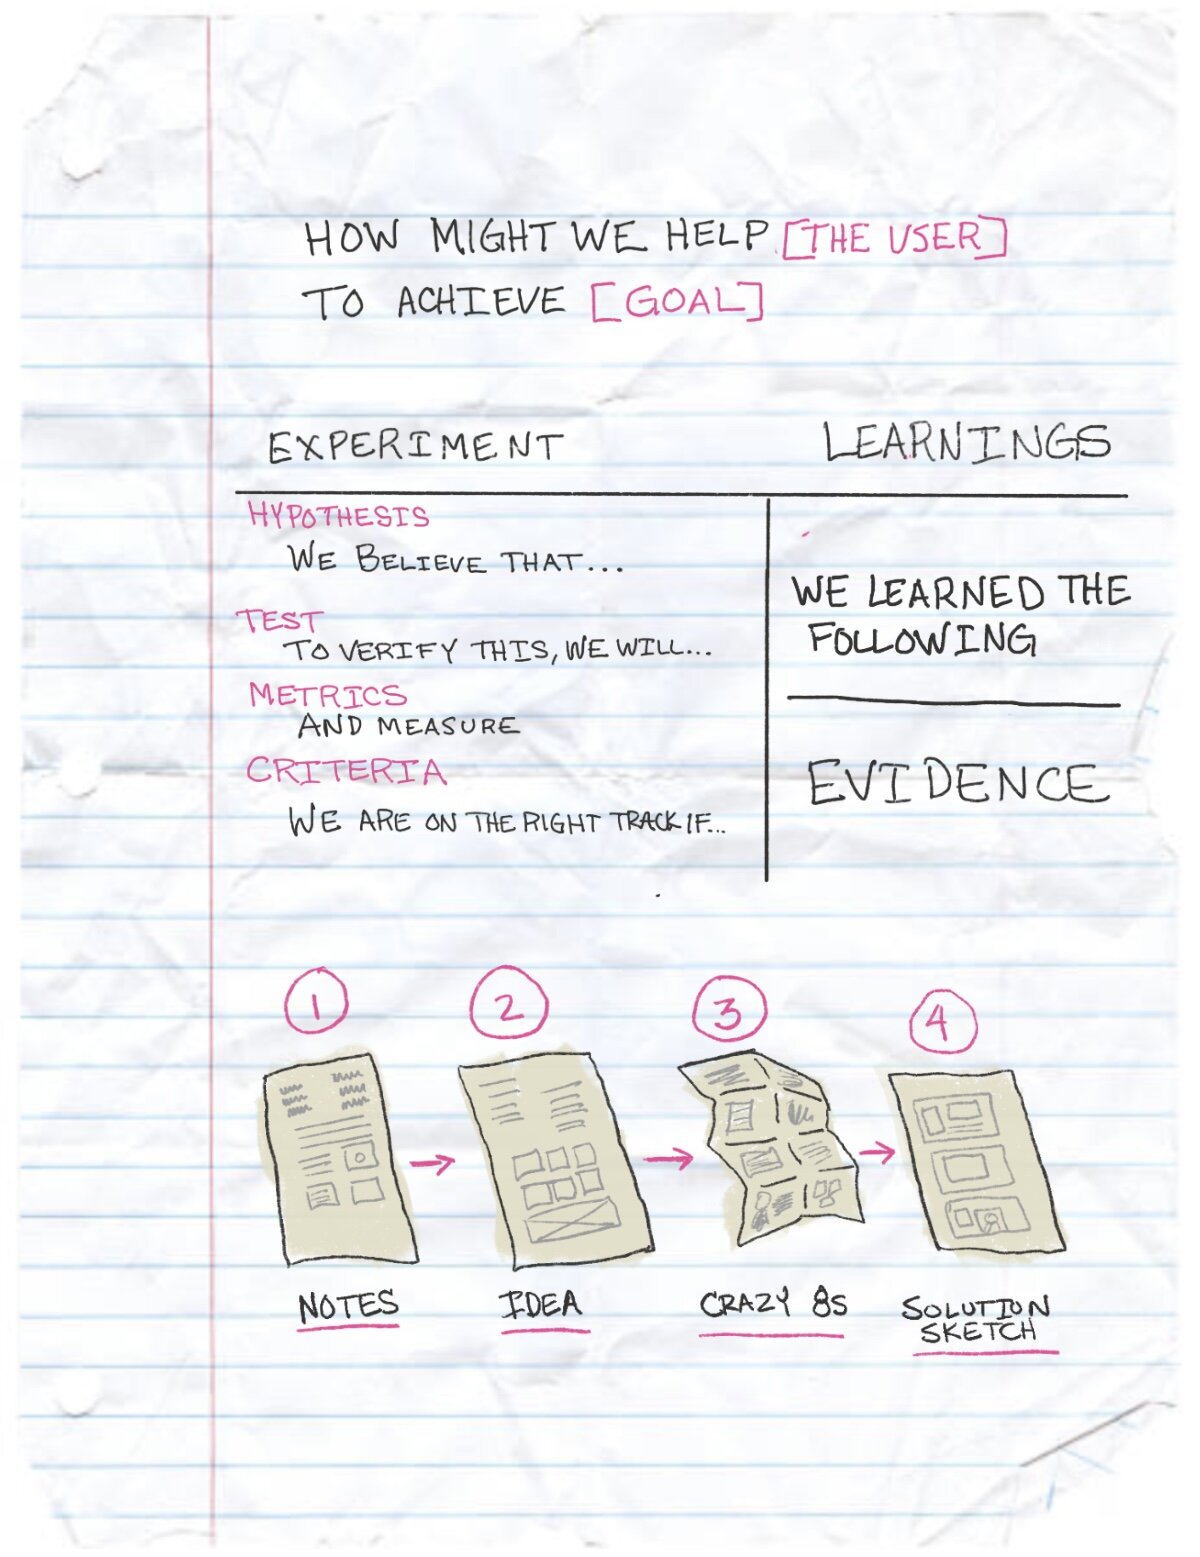 HOW MIGHT WE HELP [THE USER]
TO ACHIEVE [GOAL]
EXPERIMENT
HYPOTHESIS
WE BELIEVE THAT...
TEST
TO VERIFY THIS, WE WILL...
METRICS
AND MEASURE
CRITERIA
WE ARE ON THE RIGHT TRACK IF...
LEARNINGS
WE LEARNED THE
FOLLOWING
EVIDENCE
1
2
3
4
NOTES
IDEA
CRAZY 8S
SOLUTION
SKETCH